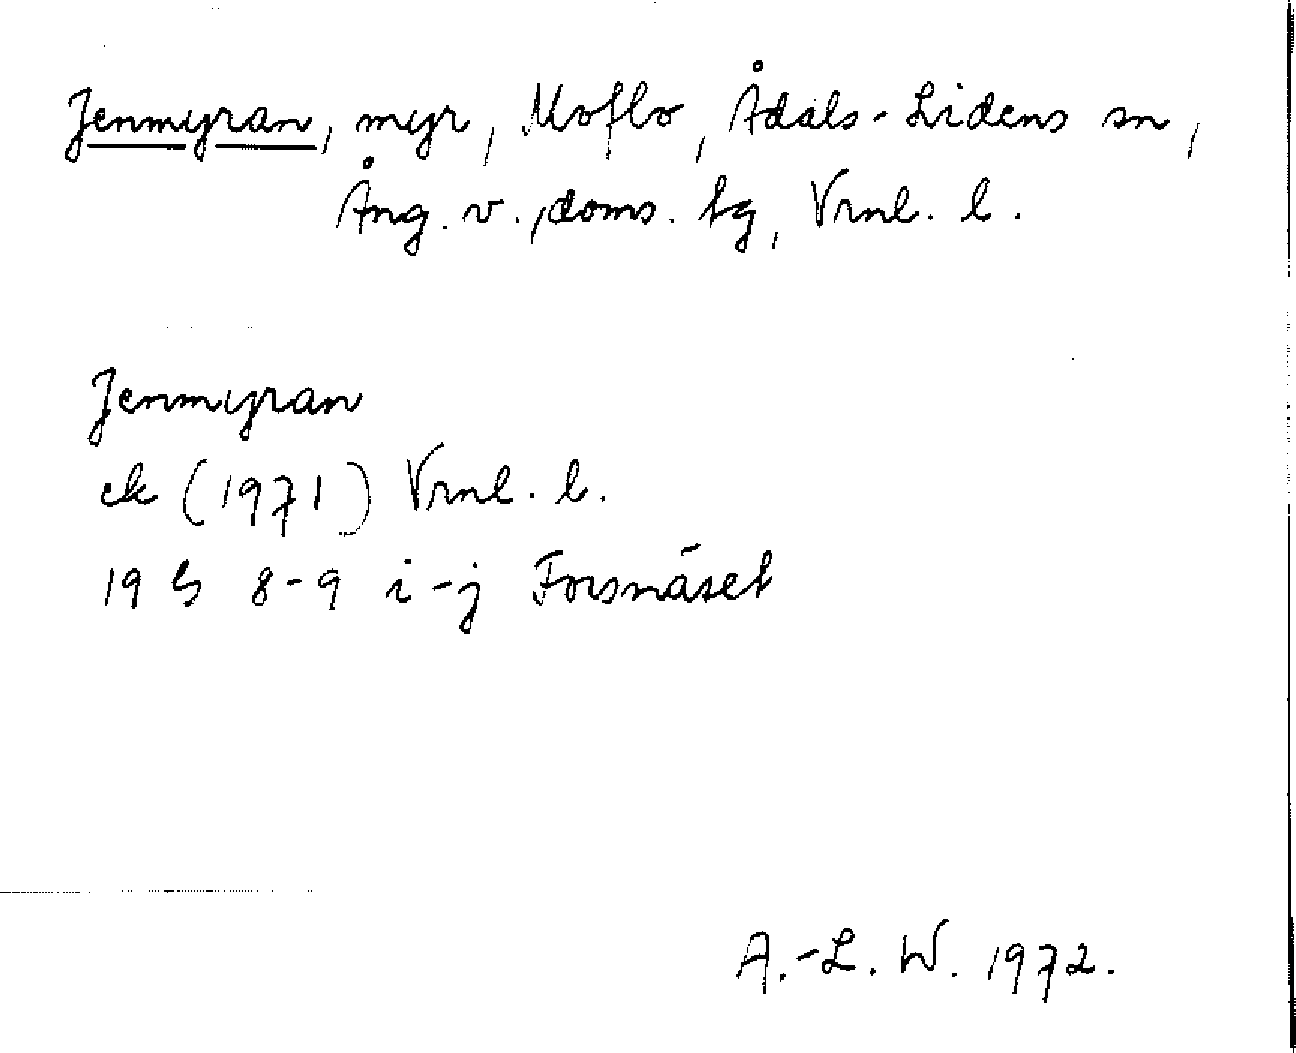 Jenmyran, myr, Moflo, Ådals-Lidens sn,
Ång. v. doms. tg, Vrnl. l.
Jenmyran
ek (1971) Vrnl. l.
19 G 8-9 i-j Forsnäset
A.-L. W. 1972.